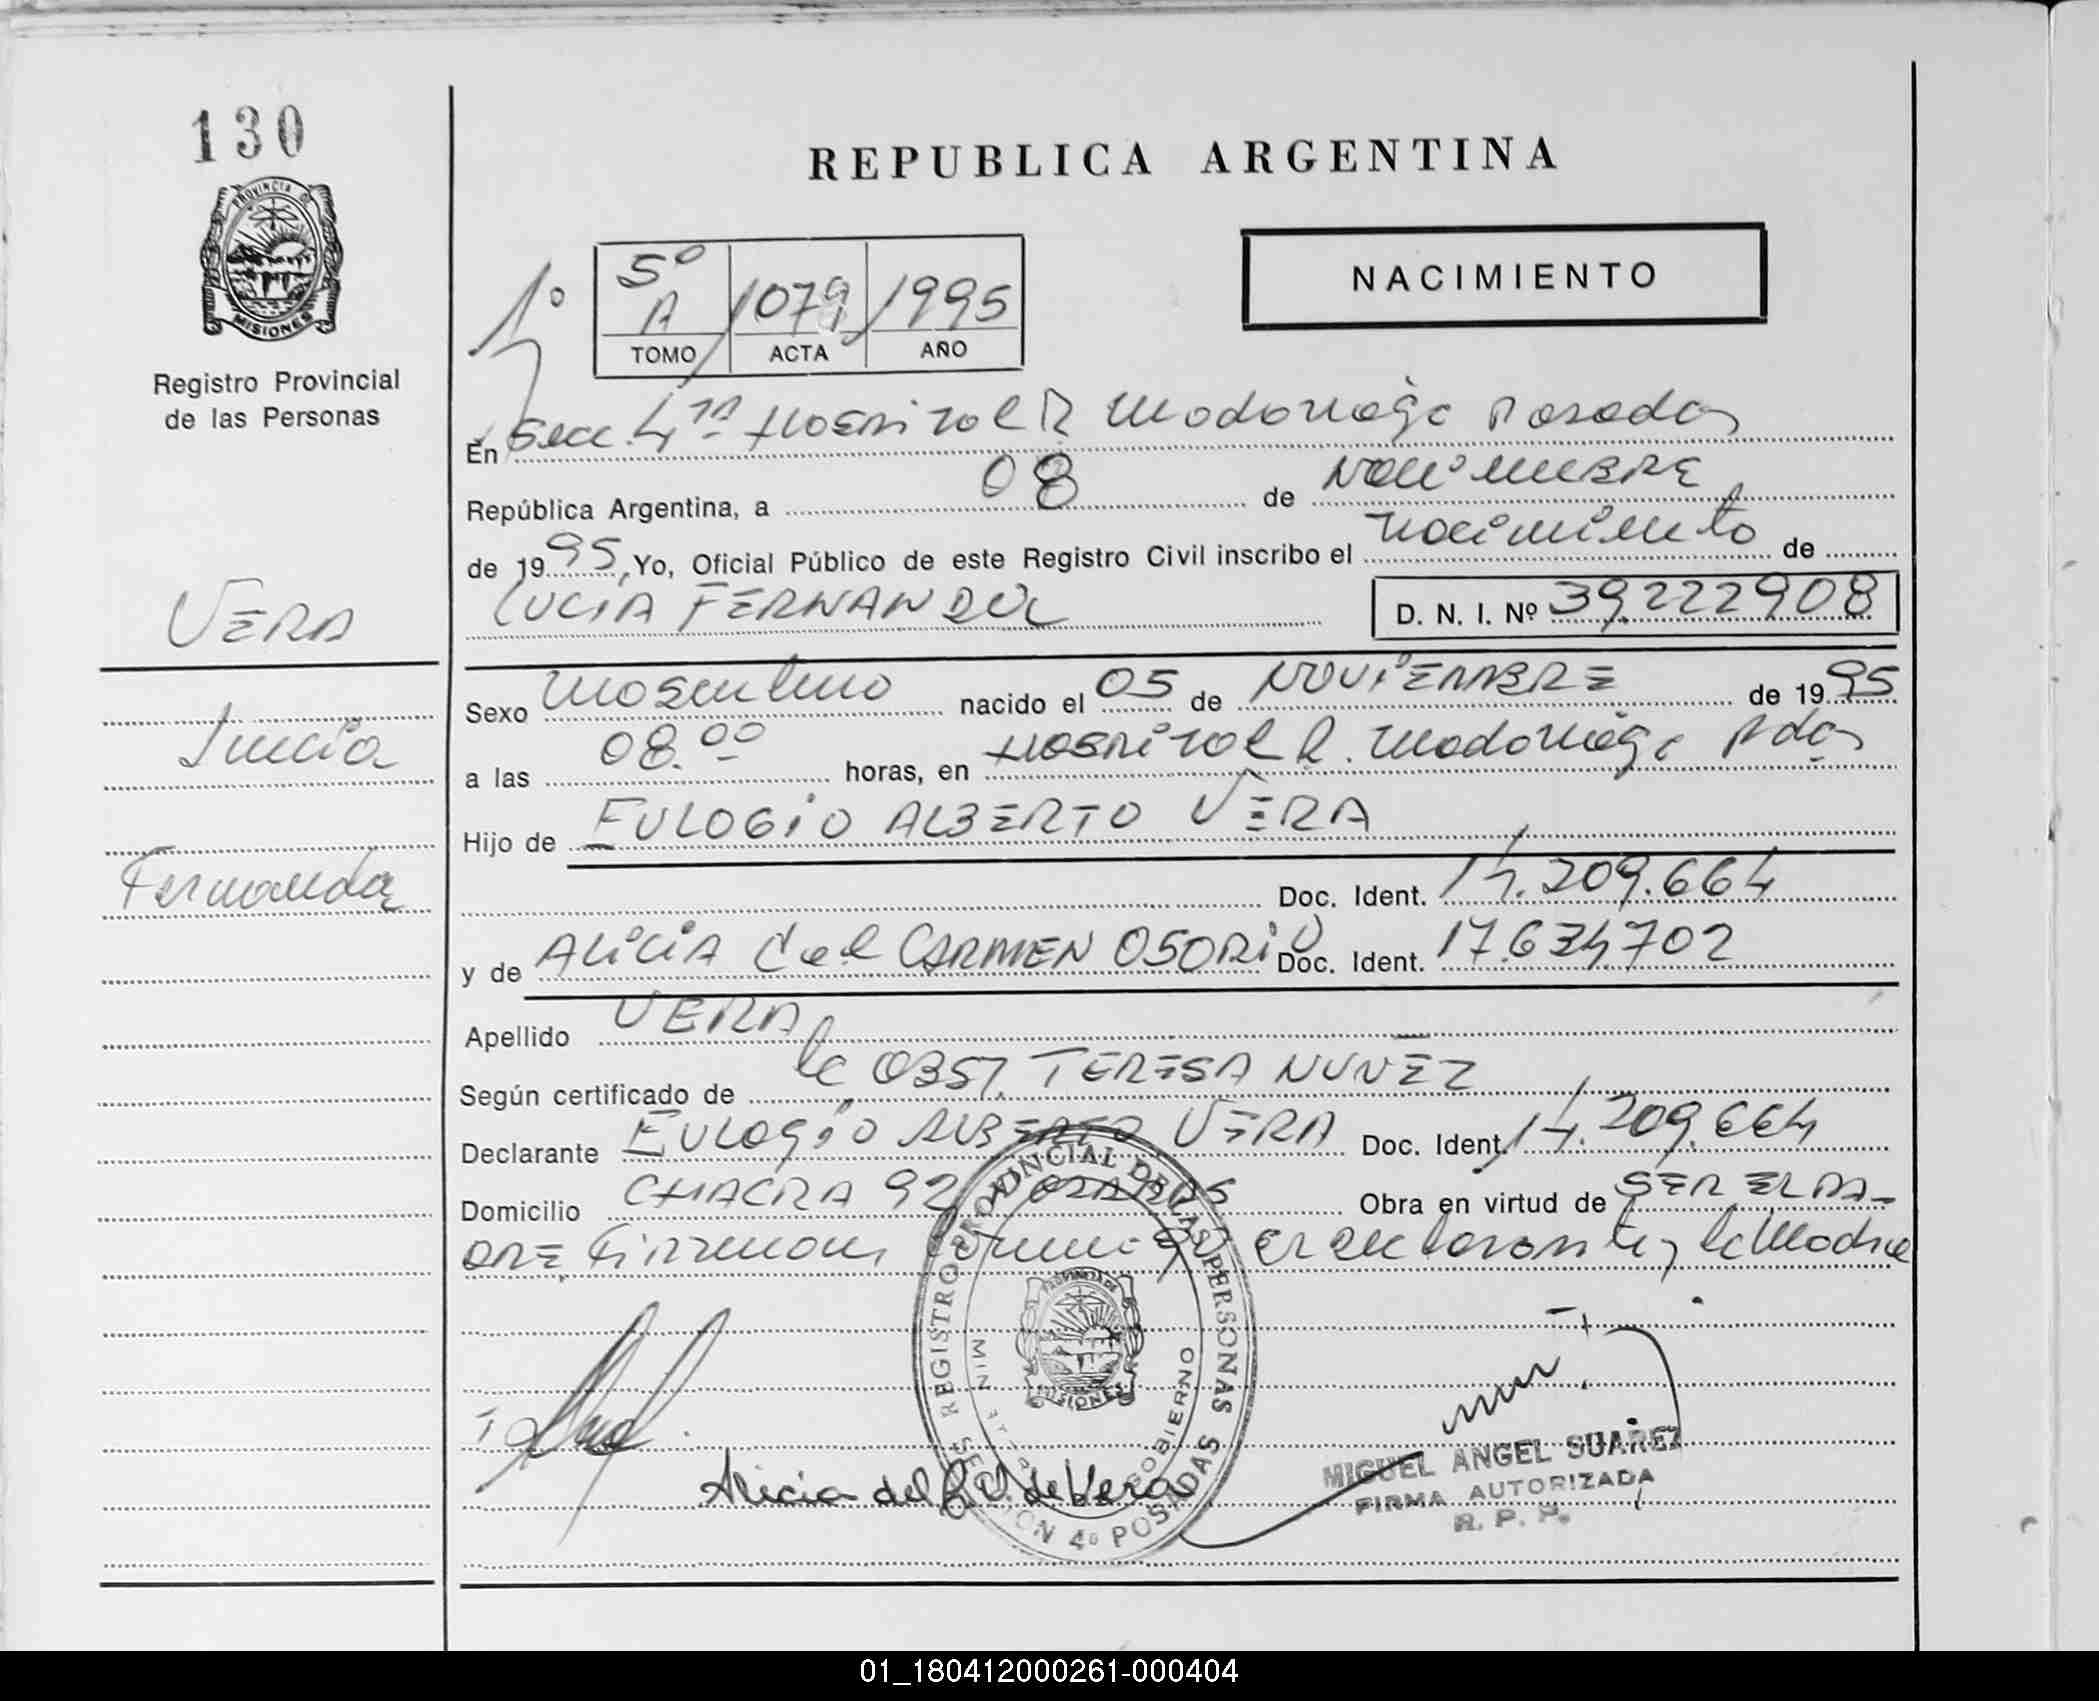 130
PROVINCIA DE
MISIONES
Registro Provincial
de las Personas
VERA
Lucia
Fernanda
REPUBLICA ARGENTINA
NACIMIENTO
1º
5º A 1079 1995
TOMO ACTA AÑO
En Secc. 4ta Hospital R. Madariaga Posadas
República Argentina, a 08 de NoviEMBRE
de 1995, Yo, Oficial Público de este Registro Civil inscribo el nacimiento de
LUCIA FERNANDA
D. N. I. Nº 39.222.908
Sexo Masculino nacido el 05 de NOVIEMBRE de 1995
a las 08.00 horas, en Hospital R. Madariaga Pdas
Hijo de EULOGIO ALBERTO VERA
Doc. Ident. 14.209.664
y de ALICIA del CARMEN OSORIO Doc. Ident. 17.634.702
Apellido VERA
Según certificado de la OBST. TERESA NUÑEZ
Declarante EULOGIO ALBERTO VERA Doc. Ident. 14.209.664
Domicilio CHACRA 92 POSADAS Obra en virtud de SER EL PA-
DRE, Firman conmigo el declarante y la Madre
REGISTRO PROVINCIAL DE LAS PERSONAS
SECCION 4º POSADAS
GOBIERNO
MISIONES
Alicia del C. O. de Vera
MIGUEL ANGEL SUAREZ
FIRMA AUTORIZADA
R. P. P.
01_180412000261-000404